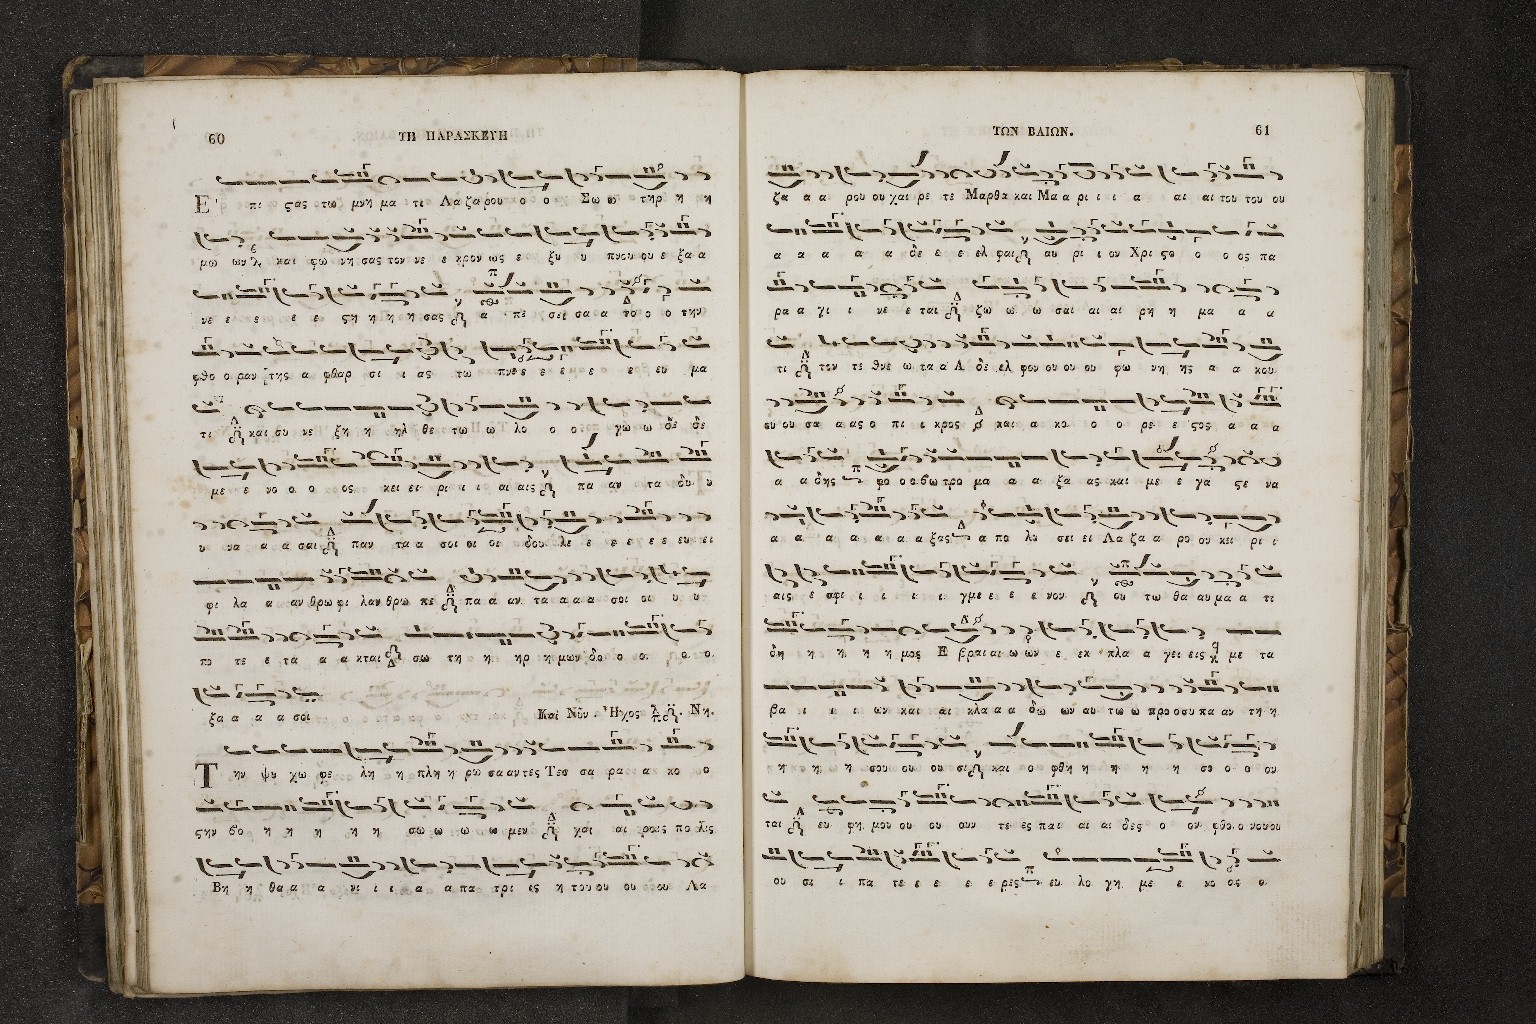 60 ΤΗ ΠΑΡΑΣΚΕΥΗ
Ε' πι ϛας τω μνη μα τι Λα ζα ρου ο ο Σω ω τηρ η η
μω ων και φω νη σας τον νε ε κρον ως ε ξυ υ πνου ου ε ξα α
νε ε ε ε ε ϛη η η η σας α πε σει σα α το ο ο την
φθο ο ραν της α φθαρ σι ι ας τω πνε ε ε ε ε ε ευ μα
τι και συ νε ξη η ηλ θε τω ω λο ο ο γω ω δε δε
με ε νο ο ο ος κει ει ρι ι ι αι αις πα αν τα δυ υ
υ να α α σαι παν τα α σοι οι οι δου λε ε ε ε ε ε ευ ει
φι λα α αν θρω φι λαν θρω πε πα α αν τα α α α σοι οι υ υ
πο τε ε τα α α κται σω τη η ηρ η μων δο ο ο ο ο
ξα α α α σοι Και Νῦν. Ἦχος Νη.
Την ψυ χω φε λη η πλη η ρω σα αν τες Τεσ σα ρα α κο ο
ϛην βο η η η η η σω ω ω ω μεν χαι αι ροις πο λις
Βη η θα α α νι ι ι α α πα τρι ις η του ου ου ου ου Λα
ΤΩΝ ΒΑΙΩΝ. 61
ζα α α ρου ου χαι ρε τε Μαρθα και Μα α ρι ι ι α αι αι του του ου
α α α α α δε ε ε ελ φαι αυ ρι ι ον Χρι ϛο ο ο ος πα
ρα α γι ι νε ε ται ζω ω ω σαι αι αι ρη η μα α α
τι τον τε θνε ω τα α Α δε ελ φον ου ου ου φω νη ης α α κου
ου ου σα α ας ο πι ι κρος και α κο ο ο ρε ε ϛος α α α
α α δης φο ο ο βω τρο μα α α ξα ας και με ε γα ϛε να
α α α α α α α ξας α πο λυ σει ει Λα ζα α ρο ου κει ρι ι
αις ε σφι ι ι ι ι γμε ε ε ε νον ου τω θα αυ μα α τι
δη η η η η μος Ε βραι αι ω ων ε εκ πλα α γει εις με τα
βα ι ι ι ων και αι κλα α α δω ων αυ τω ω προ ο συ πα αν τη η
η η η σου ου ου σι και ο φθη η η η η σο ο ο ου
ται ευ φη μου ου ου ουν τε ες παι αι αι δες ο ον φθο ο νου ου
ου σι ι πα τε ε ε ε ε ρες ευ λο γη με ε νο ος ο